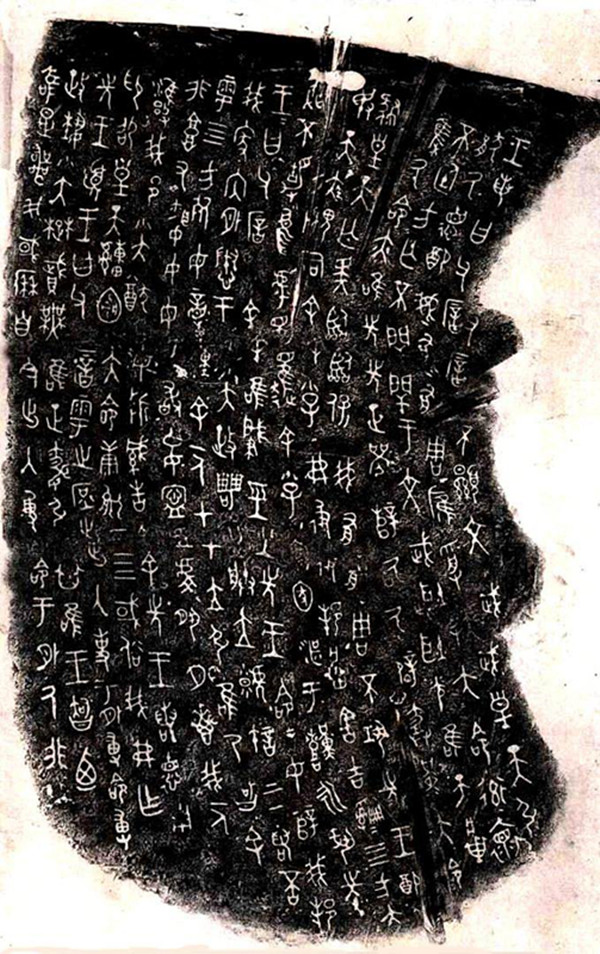 王若曰父𢉩不顯文武皇天引猒
氒德配我有周膺受大命
率褱不廷方亡不閈于文武耿光
唯天𤖕集氒命亦唯先正襄辥氒辟勞堇大命
肆皇天亡斁臨保我有周不巩先王配命
敃天疾畏司余小子弗彶邦𤖕害吉
四方大從不靜烏虖趯余小子圂湛于囏永巩先
王王曰父𢉩今余唯肇巠先王命命女辥我邦
我家內外惷于小大政甹朕立虩許上下若否
雩四方死毋童余一人才立引唯乃智余
非𩫨又昏女毋敢妄寧虔夙夕叀我一人
雝我邦小大猷毋折緘告余先王若德用
卬卲皇天𤕌圝大命康能四或俗我弗乍
先王憂王曰父𢉩雩之庶出入事于外尃命尃
政埶小大楚賦無唯正昏引其唯王智乃
唯是喪我或歷自今出入尃命于外氒非